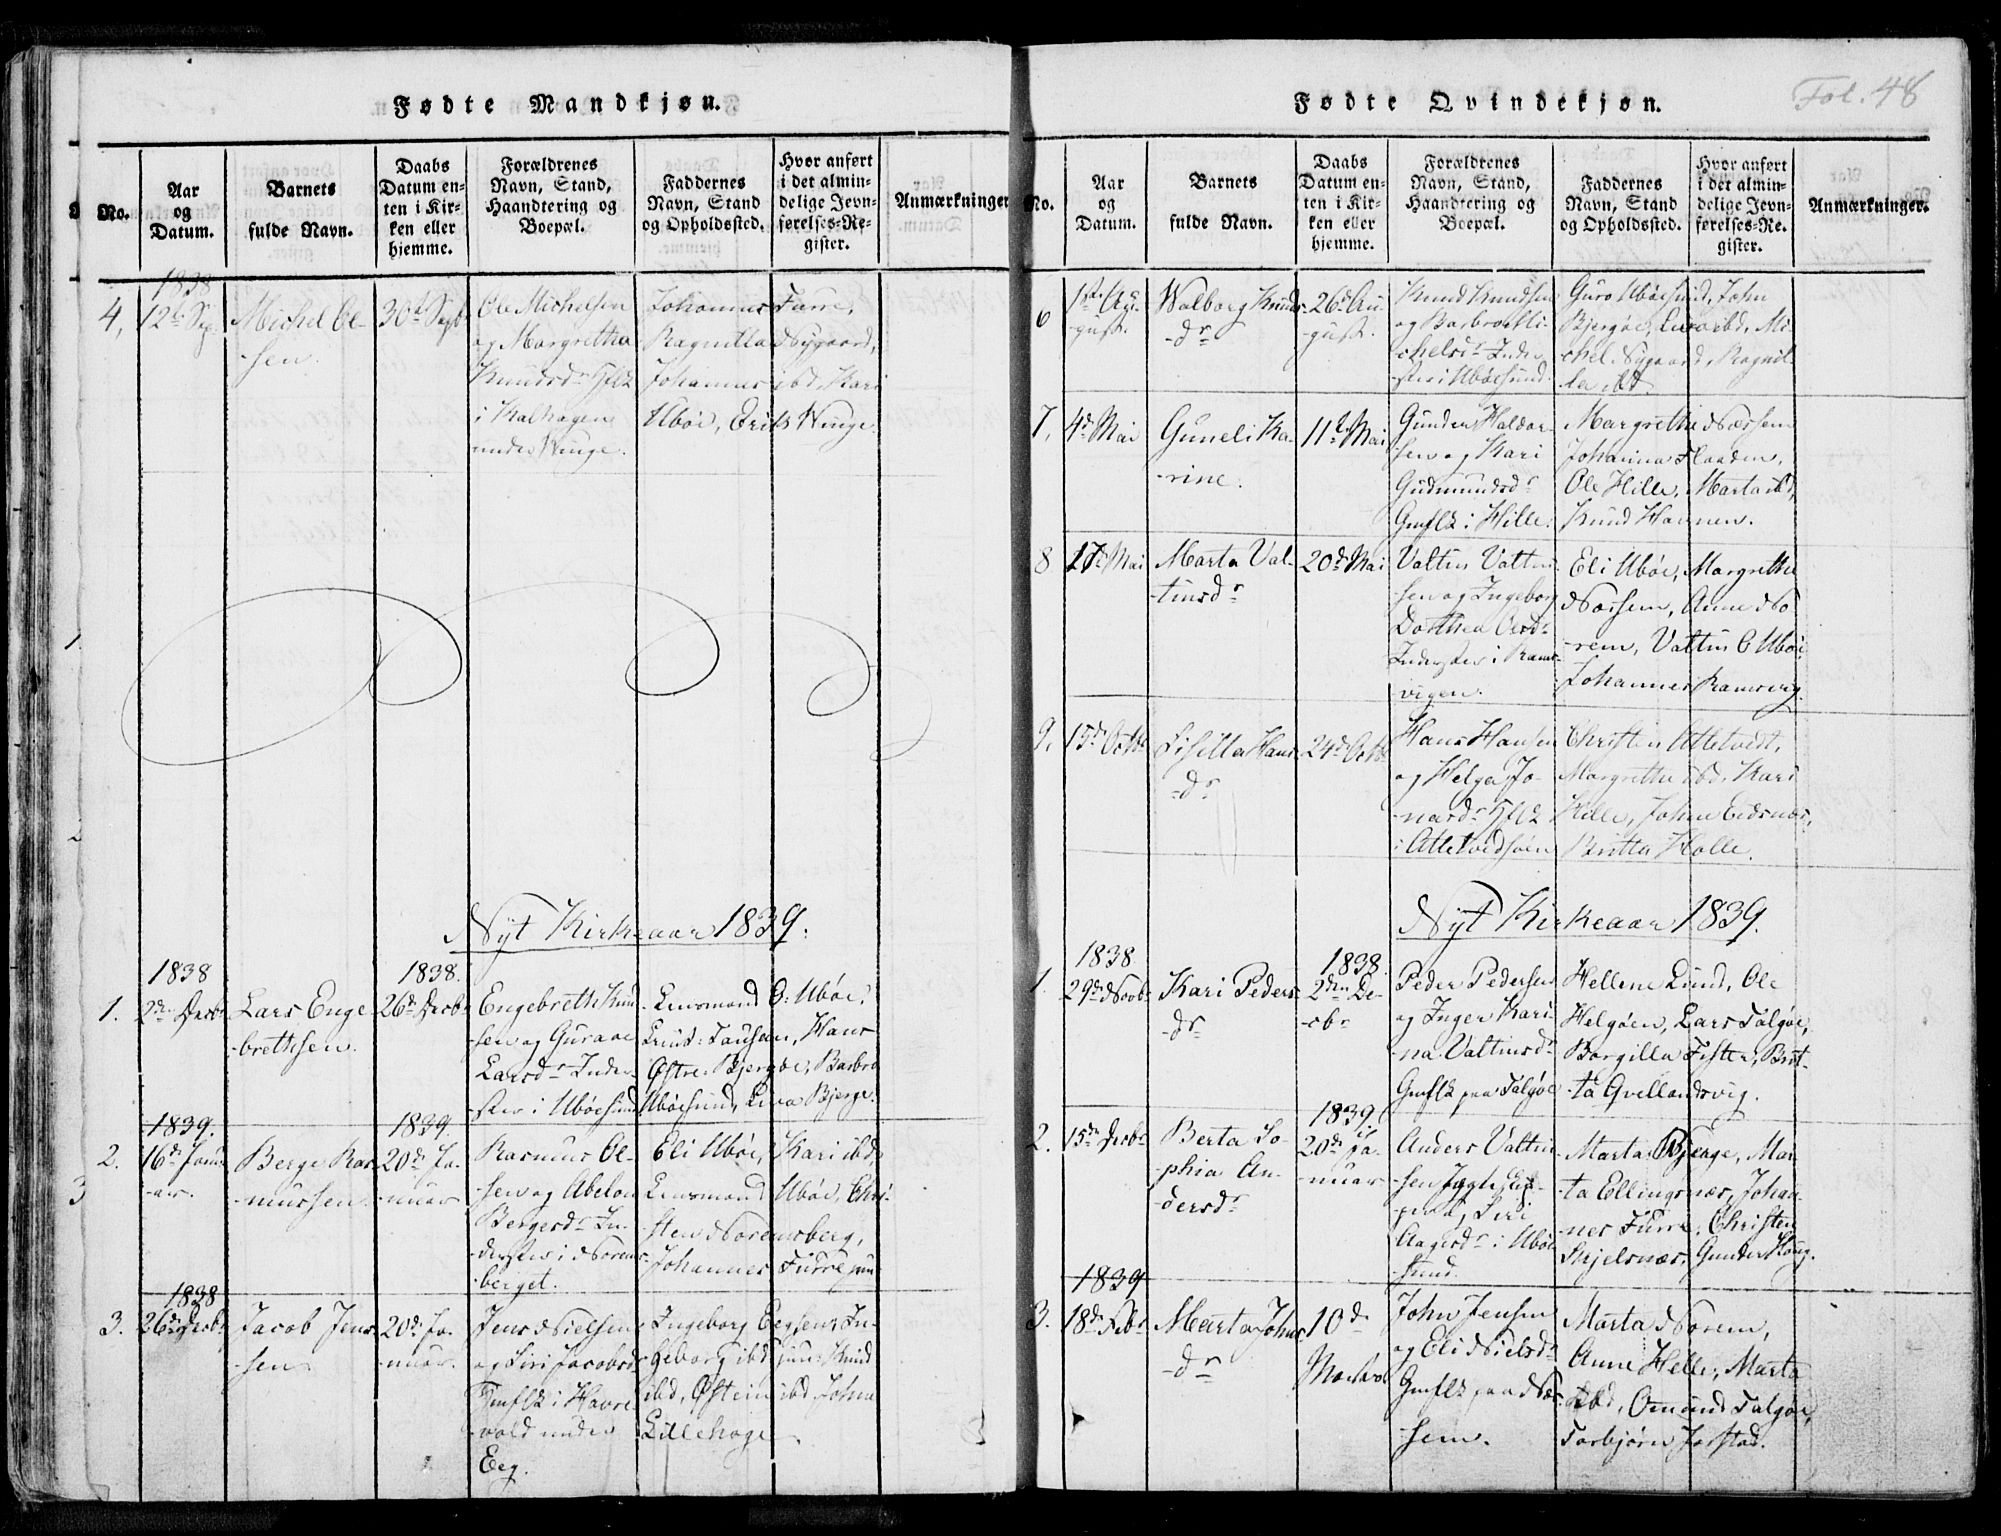 Fødte Mandkjøn.
No.
Aar
og
Datum.
Barnets
fulde Navn.
Daabs
Datum en-
ten i Kir-
ken eller
hjemme.
Forældrenes
Navn, Stand,
Haandtering og
Boepæl.
Faddernes
Navn, Stand
og Opholdssted.
Hvor anført
i det almin-
delige Jevn-
førelses-Re-
gister.
Anmærkninger
1838
4, 12te Sep.
Michel Ol-
-sen.
30d Septbr
Ole Michelsen
og Margretha
Knudsdr Hflk
i Kalhagen
under Winge.
Johannes Furre,
Ragnilla Nygaard,
Johannes ibd, Kari
Ubøe, Erik Winge.
Nyt Kirkeaar 1839.
1838
1. 2den Decbr
Lars Enge
-brethsen.
1838.
26de Decbr
Engebreth Knu
-sen og Guraae
Larsdr Inder-
ster i Ubøesund
Lensmand O: Ubøe,
Knud: Hans
Østre Bjergøe, Barbro
Ubøesund, Lina Bjerge.
1839.
2. 16de Janu
-ar.
Berge Ras
-mussen.
1839.
20de Ja-
-nuar
Rasmus Ol-
-sen og Abelon
Bergesdr In-
-derster i Norems-
-berget.
Eli Ubøe, Kari ibd,
Lensmand Ubøe, Chri-
sten Noremsberg,
Johannes Furre jun
1838
3. 26de Decbr
Jacob Jens
-sen
20de Ja-
-nuar.
Jens Nielsen
og Siri Jacobsdr
Gmflk i Havre
-vold under
Eeg.
Ingeborg Eeg sen: In-
geborg ibd jun: Knud
ibd, Østein ibd John
Lillehage.
Fødte Qvindekjøn.
Fol. 48
No.
Aar
og
Datum.
Barnets
fulde Navn.
Daabs
Datum en-
ten i Kir-
ken eller
hjemme.
Forældrenes
Navn, Stand,
Haandtering og
Boepæl.
Faddernes
Navn, Stand
og Opholdssted.
Hvor anført
i det almin-
delige Jevn-
førelses-Re-
gister.
Anmærkninger.
6 1ste Au-
-gust.
Walborg Knuds
-dr
26de Au-
-gust.
Knud Knudsen
og Barbro Mi-
-chelsdr Inder-
-ster i Ubøesund.
Guro Ubøesund, John
Bjergøe, Lina ibd, Mi-
chel Nygaard, Ragnil-
la ibd.
7, 4de Mai
Guneli Ka-
-rine.
11te Mai
Gunder Haldor
-sen og Kari
Gudmundsdr
Gmflk i Hille.
Margrethe Nessem
Johanna Flaaden,
Ole Hille, Marta ibd,
Knud Havnen.
8 17de Mai
Marta Val-
-tinsdr
20de Mai
Valtin Valtin
-sen og Ingeborg
Dorthea Olsdr
Inderster i Rams-
vigen.
Eli Ubøe, Margrethe
Nessem, Anne No
-rem, Valtin O Ubøe
Johannes Ramsvig.
9. 15de Octbr
Lisilla Hans
-dr
24de Octbr
Hans Hansen
og Helga Jo-
-narsdr Hflk
i Atletvedsøen
Christen Atletvedt,
Margrethe ibd, Kari
Hille, John Eidsnes,
Britta Holle.
Nyt Kirkeaar 1839.
1838
1. 29de Novbr
Kari Peders
-dr
1838.
2den De-
-cbr
Peder Pedersen
og Inger Kari-
-na Valtinsdr
Gmflk paa Talgøe
Hellene Lund, Ole
Helgøen, Lars Talgøe,
Borgilla Fister, Brit-
ta Qvellandsvig.
2. 15de Decbr
Berta So-
-phia An-
-dersdr
1839.
20de Ja-
-nuar
Anders Valtin
-sen
Siri
Aagesdr i Ubøe
sund.
Marta Bjerge, Mar
-ta Ellingsnes, Johan-
nes Furre, Christen
Skjelsnæs, Gunder Houg.
1839
3. 18de Febr
Marta Johns
-dr
10de
Marts
John Jensen
og Eli Nielsdr
Gmflk paa Nes-
sem.
Marta Norem,
Anne Helle, Marta
ibd, Omund Talgøe,
Torbjørn Jørstad.